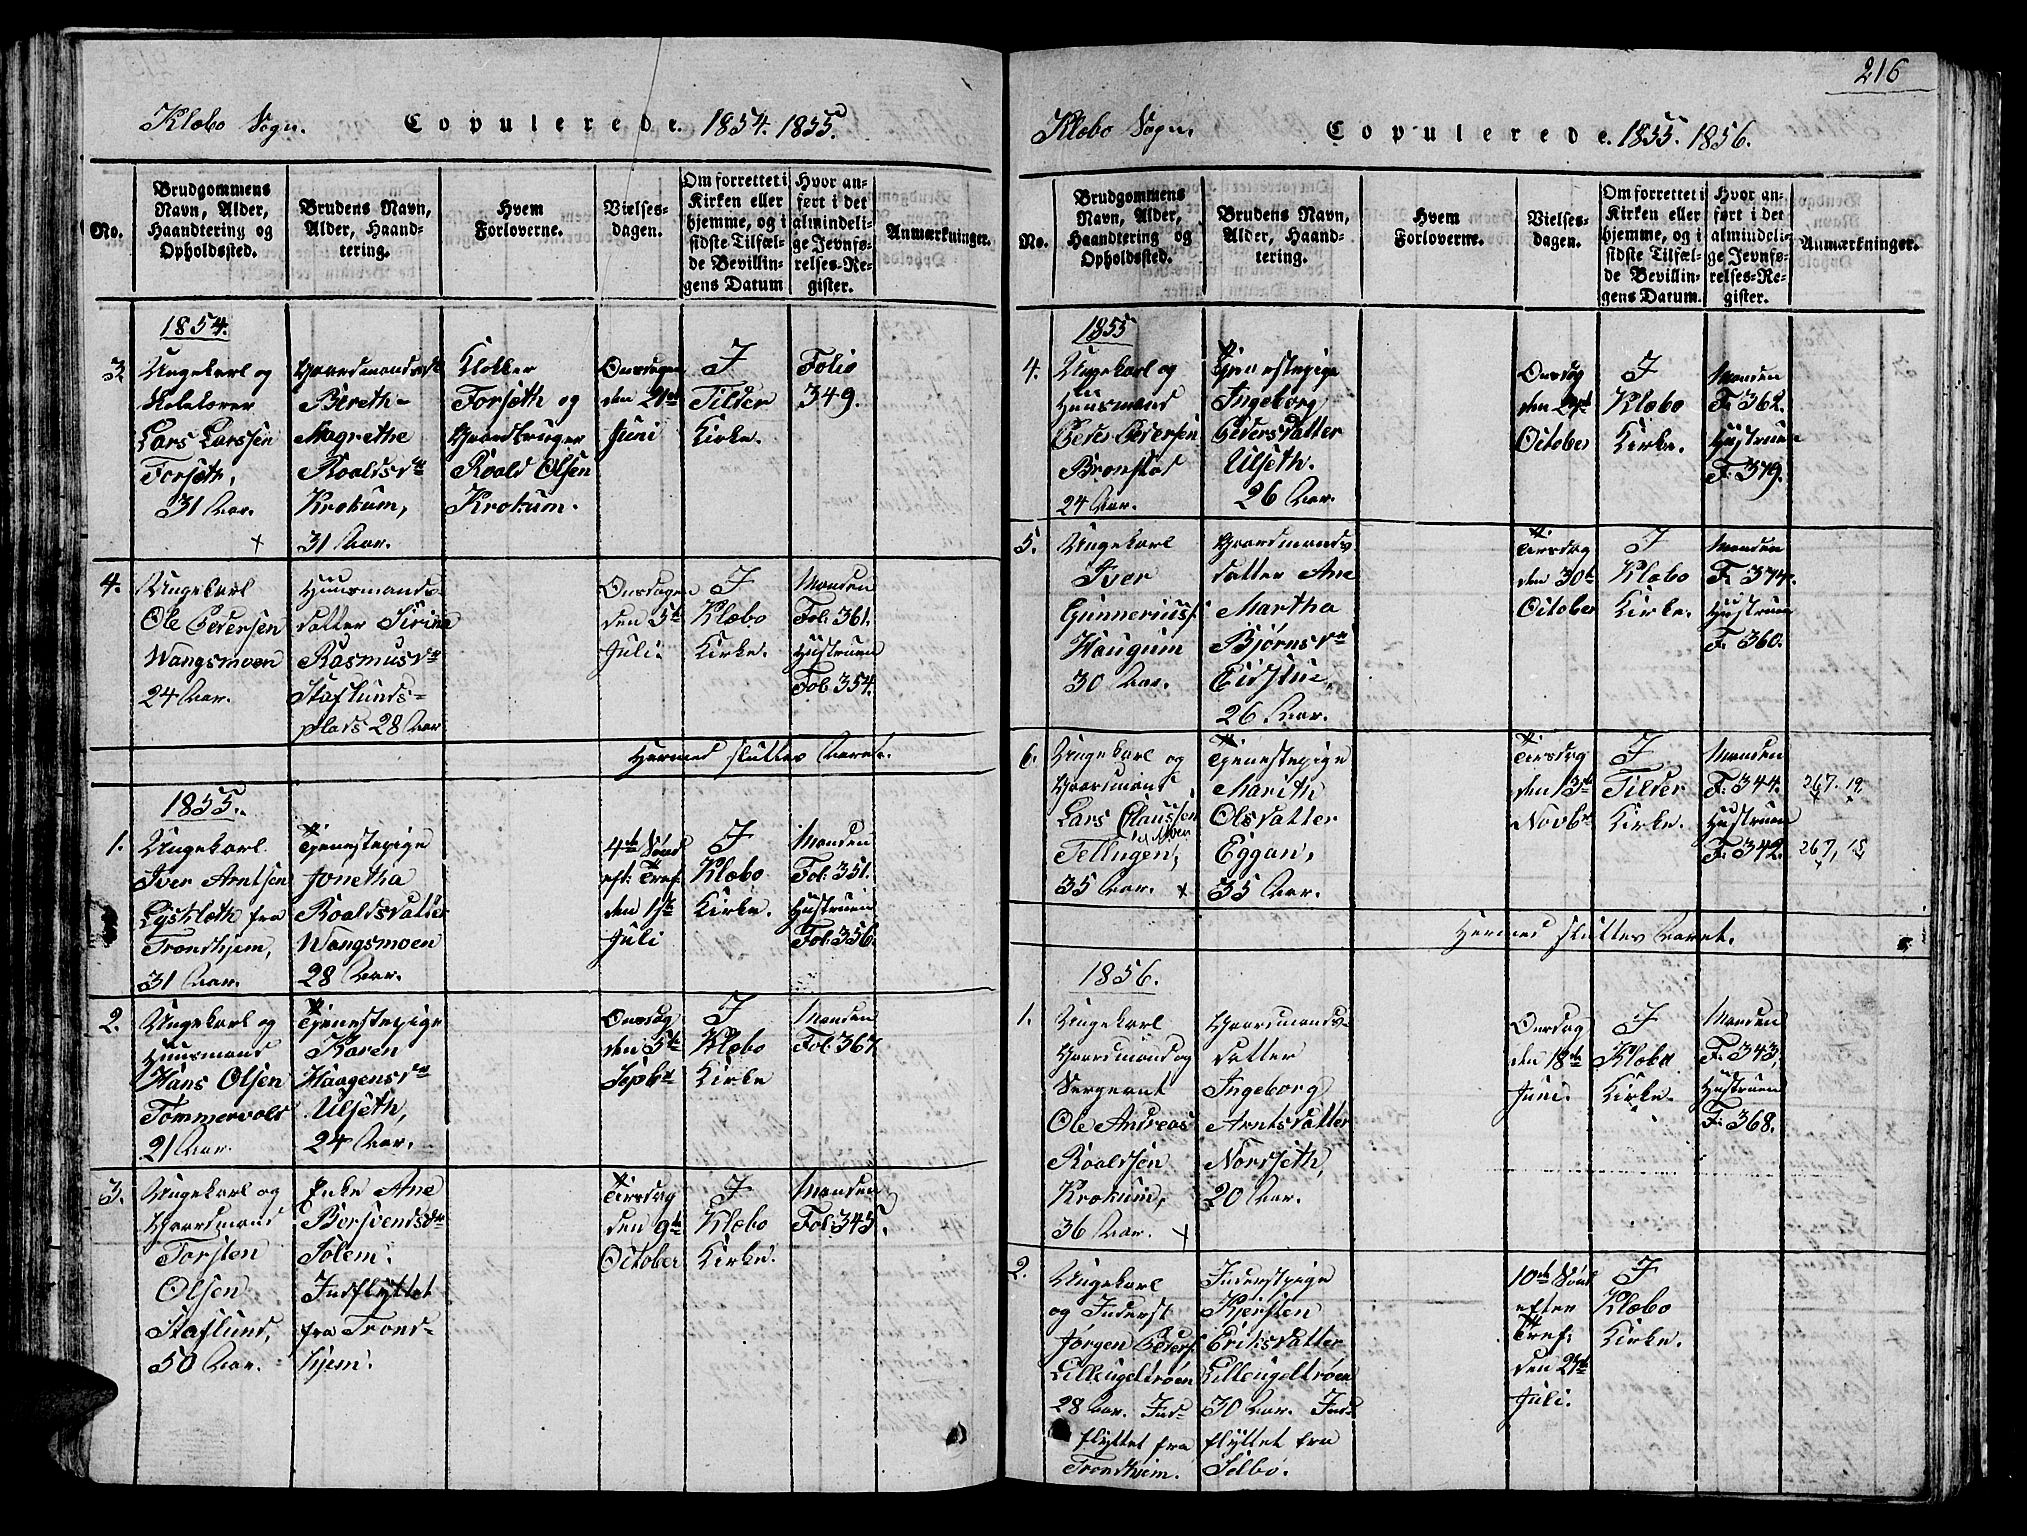 Klæbo Sogn. Copulerede. 1854. 1855.
No.
Brudgommens
Navn, Alder,
Haandtering og
Opholdssted.
Brudens Navn,
Alder, Haand-
tering.
Hvem
Forloverne.
Vielses-
dagen.
Om forrettet i
Kirken eller
hjemme, og i
sidste Tilfæl-
de Bevillin-
gens Datum
Hvor an-
ført i det
almindeli-
ge Jevnfø-
relses-Re-
gister.
Anmærkninger.
1854.
3.
Ungekarl og
Lars Larssen
Forseth,
31 Aar.
Gaardmandsdt
Bereth-
Magrethe
Roaldsdr
Krokum,
31 Aar.
Klokker
Forseth og
Gaardbruger
Roald Olsen
Krokum.
Onsdagen
den 21de
Juni
I
Tilder
Kirke.
Folio
349.
4.
Ungekarl
Ole Pedersen
Wangsmoen
24 Aar.
Huusmands-
datter Sirine
Rasmusdr
Staflunds-
plads 28 Aar
Onsdagen
den 5te
Juli.
I
Klæbo
Kirke.
Manden
Fol. 361.
Hustruen
Fol. 354.
Hermed sluttes Aaret.
1855.
1.
Ungekarl
Iver Arntsen
Lysklæth fra
Trondhjem,
31 Aar.
Tjenestepige
Jonetha
Roaldsdatter
Wangsmoen
28 Aar.
4de Sønd
eft. Tref.
den 1ste
Juli
I
Klæbo
Kirke.
Manden
Fol. 351.
Hustruen
Fol. 356.
2.
Ungekarl og
Huusmand
Hans Olsen
Tømmervold
21 Aar.
Tjenestepige
Karen
Haagensdr
Ulseth,
24 Aar.
Onsdag
den 5te
Sepbr
I
Klæbo
Kirke
Manden
Fol. 367
3.
Ungekarl og
Gaardmand
Torsten
Olsen
Staflund,
50 Aar.
Enke Ane
Bersvendsdr
Solem.
Indflyttet
fra Trond-
hjem.
Tirsdag
den 9de
October
I
Klæbo
Kirke.
Manden
Fol. 345.
216
Klæbo Sogn. Copulerede. 1855. 1856.
No.
Brudgommens
Navn, Alder,
Haandtering og
Opholdssted.
Brudens Navn,
Alder, Haand-
tering.
Hvem
Forloverne.
Vielses-
dagen.
Om forrettet i
Kirken eller
hjemme, og i
sidste Tilfæl-
de Bevillin-
gens Datum.
Hvor an-
ført i det
almindeli-
ge Jevnfø-
relses-Re-
gister.
Anmærkninger.
1855
4.
Ungekarl og
Huusmand
Peder Pedersen
Brønstad
24 Aar.
Tjenestepige
Ingeborg
Pedersdatter
Ulseth.
26 Aar.
Onsdag
den 24de
October
I
Klæbo
Kirke.
Manden
F. 362.
Hustruen
F. 379.
5.
Ungekarl
Iver
Gunneriuss.
Haugum
30 Aar.
Gaardmands-
datter Ane
Martha
Bjørnsdr
Eidstue,
26 Aar.
Tirsdag
den 30te
October
I
Klæbo
Kirke.
Manden
F. 374.
Hustruen
F. 360.
6.
Ungekarl og
Gaardmand
Lars Claussen
Tellugen,
35 Aar.
Tjenestepige
Marith
Olsdatter
Eggan,
35 Aar.
Tirsdag
den 13de
Novbr
I
Tilder
Kirke.
Manden
F. 344. 267. 19
Hustruen
F. 342. 267, 15
Hermed sluttes Aaret.
1856.
1.
Ungekarl
Gaardmand og
Sergeant
Ole Andreas
Roaldsen
Krokum,
36 Aar.
Gaardmands-
datter
Ingeborg
Arntsdatter
Nordseth,
20 Aar.
Onsdag
den 18de
Juni.
I
Klæbo
Kirke.
Manden
F. 343.
Hustruen
F. 368.
2.
Ungekarl
og Inderst
Jørgen Peders.
Lilleugeltrøen
28 Aar. Ind-
flyttet fra
Trondhjem.
Inderstpige
Kjersten
Eriksdatter
Lilleugeltrøen
30 Aar. Ind-
flyttet fra
Selbo.
10de Sønd
efter
Tref.
den 27de
Juli.
I
Klæbo
Kirke.